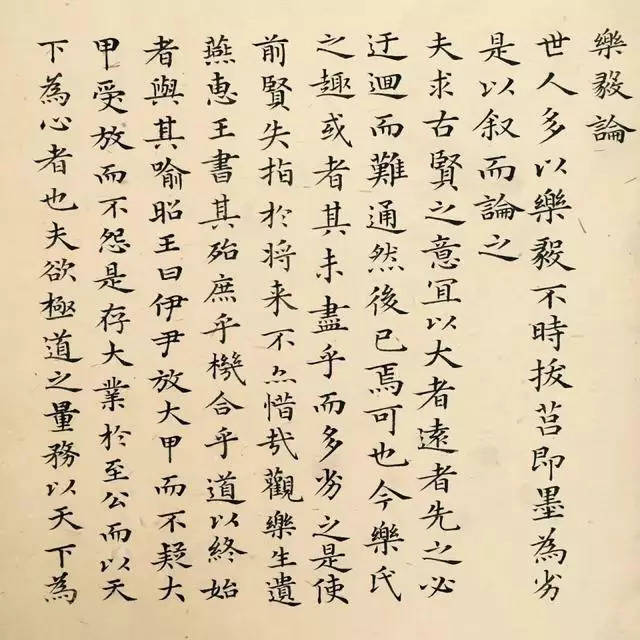 樂毅論
世人多以樂毅不時拔莒即墨為劣
是以叙而論之
夫求古賢之意宜以大者遠者先之必
迂迴而難通然後已焉可也今樂氏
之趣或者其未盡乎而多劣之是使
前賢失指於将来不亦惜哉觀樂生遺
燕惠王書其殆庶乎機合乎道以終始
者與其喻昭王曰伊尹放大甲而不疑大
甲受放而不怨是存大業於至公而以天
下為心者也夫欲極道之量務以天下為